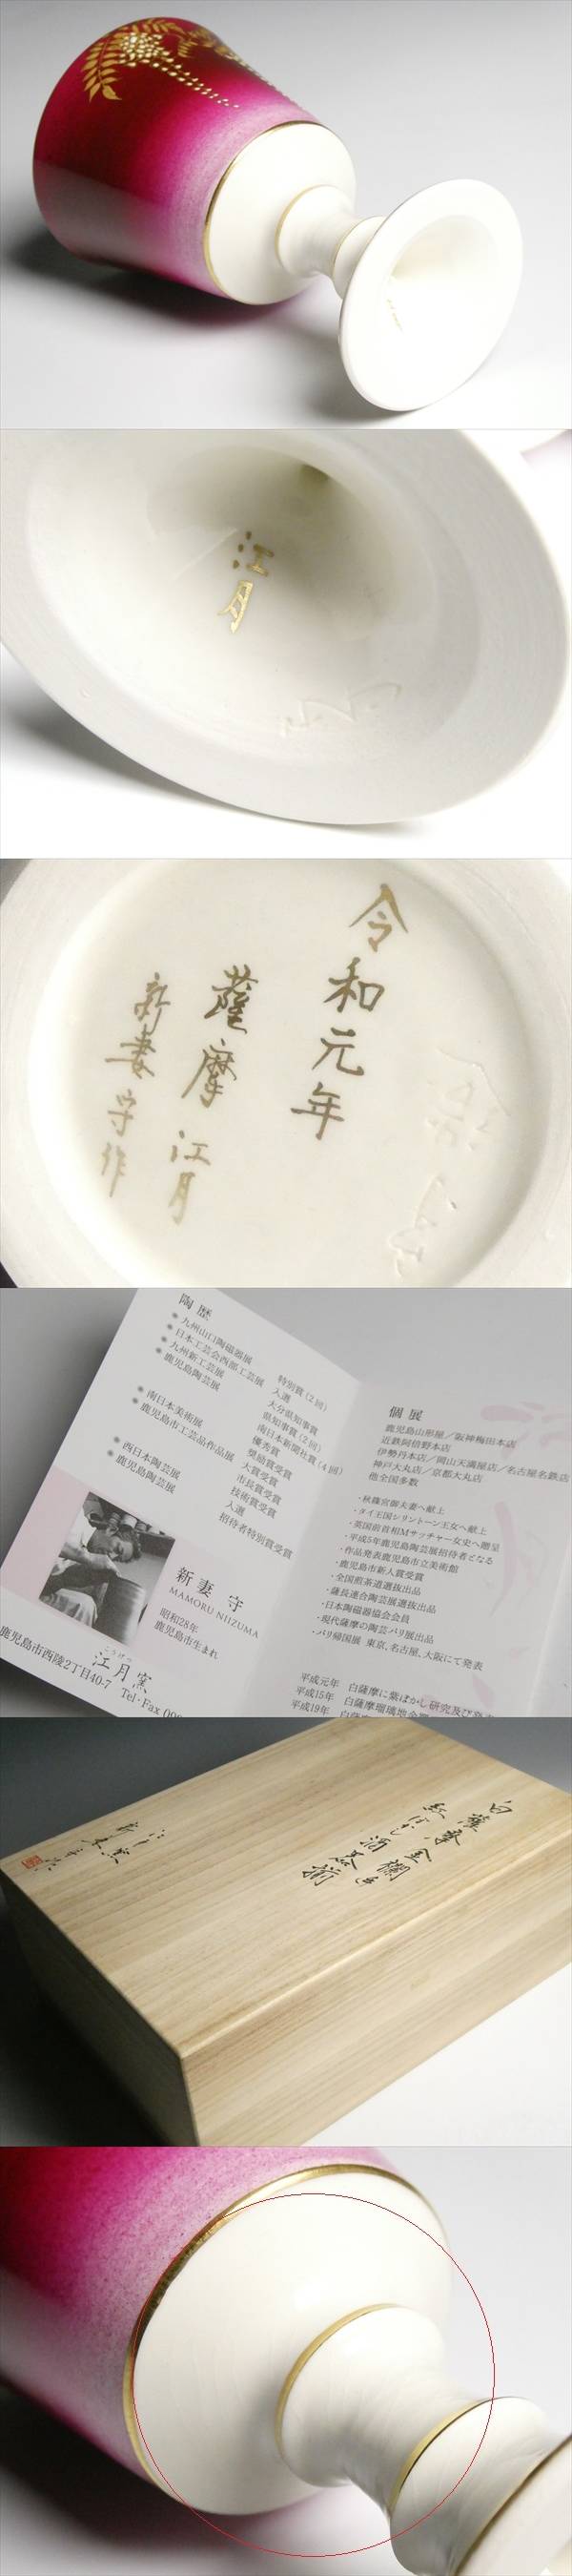 江月
令和元年
薩摩 江月
新妻守作
陶歴
九州山口陶磁器展 特別賞(2回)
入選
日本工芸会西部工芸展 大分県知事賞
九州新工芸展 県知事賞(2回)
鹿児島陶芸展 南日本新聞社賞(4回)
優秀賞
奨励賞受賞
南日本美術展 大賞受賞
鹿児島市工芸品作品展 市長賞受賞
技術賞受賞
西日本陶芸展 入選
鹿児島陶芸展 招待者特別賞受賞
新妻 守
MAMORU NIIZUMA
昭和28年
鹿児島市生まれ
こうげつ
江月窯
鹿児島市西陵2丁目40-7 Tel・Fax
個展
鹿児島山形屋/阪神梅田本店
近鉄阿倍野本店
伊勢丹本店/岡山天満屋店/名古屋名鉄店
神戸大丸店/京都大丸店
他全国多数
・秋篠宮御夫妻へ献上
・タイ王国シリントーン王女へ献上
・英国前首相Mサッチャー女史へ贈呈
・平成5年鹿児島陶芸展招待者となる
・作品発表鹿児島市立美術館
・鹿児島市新人賞受賞
・全国煎茶道選抜出品
・薩長連合陶芸展選抜出品
・日本陶磁器協会会員
・現代薩摩の陶芸パリ展出品
・パリ帰国展 東京、名古屋、大阪にて発表
平成元年 白薩摩に紫ぼかし研究及び発表
平成15年 白薩摩瑠璃地金
平成19年 白薩
白薩摩金襴手
紅ぼかし酒器揃
江月窯
新妻守